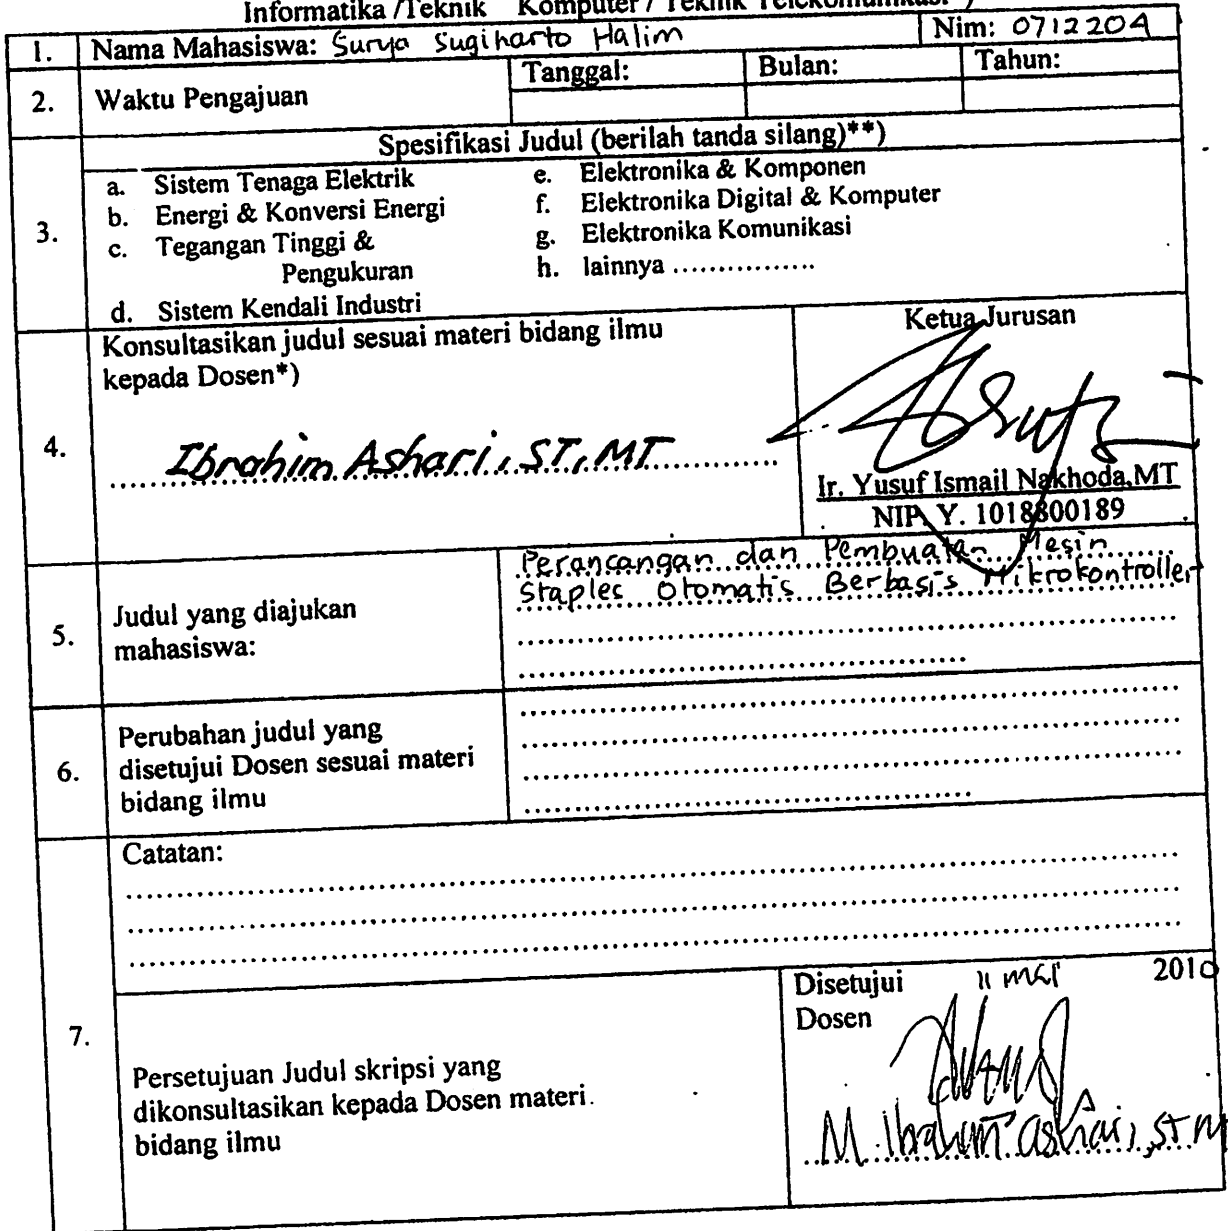 Informatika /Teknik Komputer / Teknik Telekomunikasi *)
1. Nama Mahasiswa: Surya Sugiharto Halim Nim: 0712204
2. Waktu Pengajuan Tanggal: Bulan: Tahun:
3. Spesifikasi Judul (berilah tanda silang)**)
a. Sistem Tenaga Elektrik
b. Energi & Konversi Energi
c. Tegangan Tinggi &
Pengukuran
d. Sistem Kendali Industri
e. Elektronika & Komponen
f. Elektronika Digital & Komputer
g. Elektronika Komunikasi
h. lainnya ................
4. Konsultasikan judul sesuai materi bidang ilmu
kepada Dosen*)
Ibrahim Ashari, ST, MT
Ketua Jurusan
Ir. Yusuf Ismail Nakhoda,MT
NIP. Y. 1018800189
5. Judul yang diajukan
mahasiswa:
Perancangan dan Pembuatan Mesin
Staples Otomatis Berbasis Mikrokontroller
6. Perubahan judul yang
disetujui Dosen sesuai materi
bidang ilmu
7. Catatan:
Persetujuan Judul skripsi yang
dikonsultasikan kepada Dosen materi
bidang ilmu
Disetujui 11 Mei 2010
Dosen
M. Ibrahim Ashari, ST M